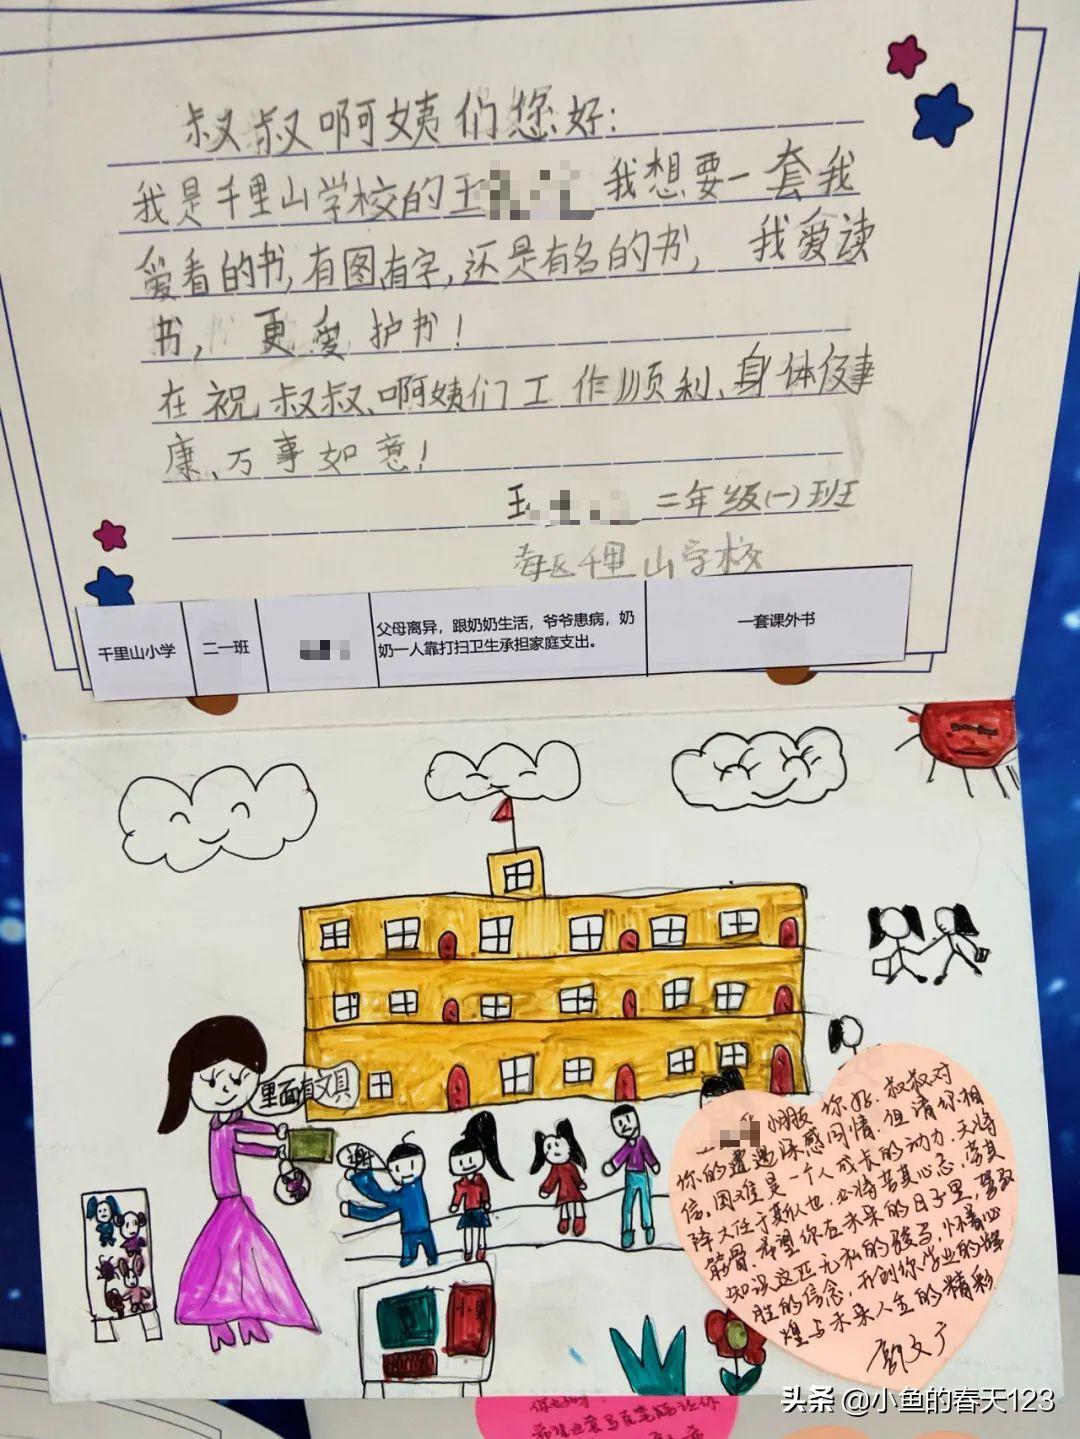 叔叔啊姨们您好：
我是千里山学校的王 我想要一套我
爱看的书，有图有字，还是有名的书， 我爱读
书， 更爱护书！
在祝叔叔、啊姨们工作顺利、身体健
康、万事如意！
王 二年级(一)班
海区千里山学校
千里山小学 二一班 父母离异，跟奶奶生活，爷爷患病，奶 一套课外书
奶一人靠打扫卫生承担家庭支出。
里面有文具
谢
小
小朋友 你好. 叔叔对
你的遭遇深感同情. 但请你相
信, 困难是一个人成长的动力. 天将
降大任于斯人也, 必将苦其心志, 劳其
筋骨. 希望你在未来的日子里, 驾驭
知识这匹无私的骏马, 怀着必
胜的信念, 开创你学业的辉
煌与未来人生的精彩.
头条 @小鱼的春天123